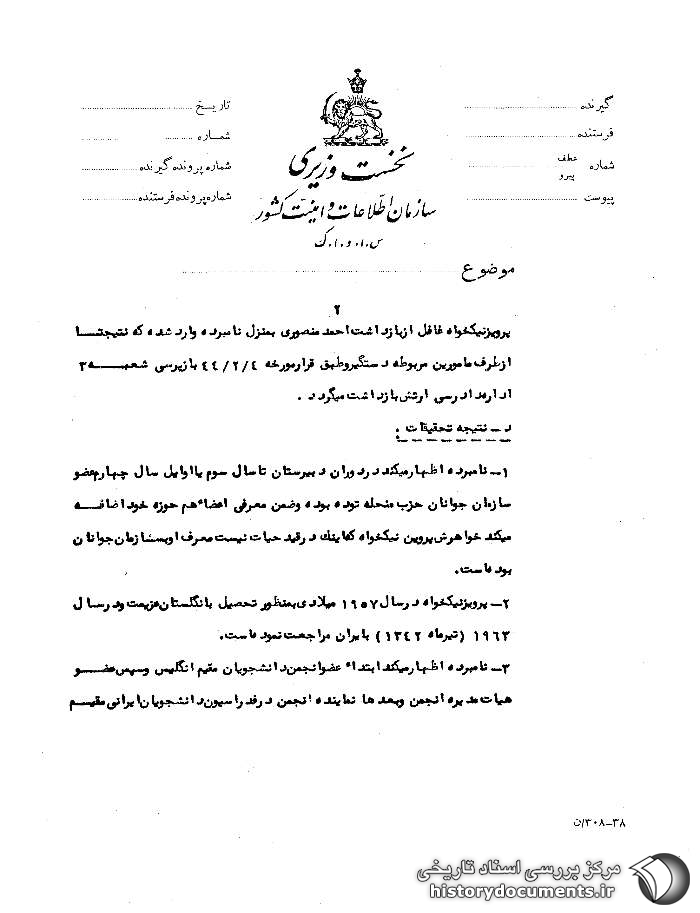 گیرنده
فرستنده
شماره عطف پیرو
پیوست
نخست وزیری
سازمان اطلاعات و امنیت کشور
س.ا.و.ا.ک
تاریخ
شماره
شماره پرونده گیرنده
شماره پرونده فرستنده
موضوع
۲
پرویز نیکخواه غافل از بازداشت احمد منصوری بمنزل نامبرده وارد شده که نتیجتا
از طرف مامورین مربوطه دستگیر و طبق قرار مورخه ۴۴/۲/۴ بازپرسی شعبه ۳
اداره دادرسی ارتش بازداشت میگردد .
د - نتیجه تحقیقات :
۱- نامبرده اظهار میکند در دوران دبیرستان تا سال سوم یا اوایل سال چهارم عضو
سازمان جوانان حزب منحله توده بوده و ضمن معرفی اعضاء هم حوزه خود اضافه
میکند خواهرش پروین نیکخواه که اینك در قید حیات نیست معرف او بسازمان جوانان
بوده است.
۲- پرویز نیکخواه در سال ۱۹۵۷ میلادی بمنظور تحصیل بانگلستان عزیمت و در سال
۱۹۶۳ (تیرماه ۱۳۴۲) بایران مراجعت نموده است.
۳- نامبرده اظهار میکند ابتداء عضو انجمن دانشجویان مقیم انگلیس و سپس عضو
هیات مدیره انجمن و بعدها نماینده انجمن در فدراسیون دانشجویان ایرانی مقیم
۳۰۸-۳۸/ن
مرکز بررسی اسناد تاریخی
historydocuments.ir